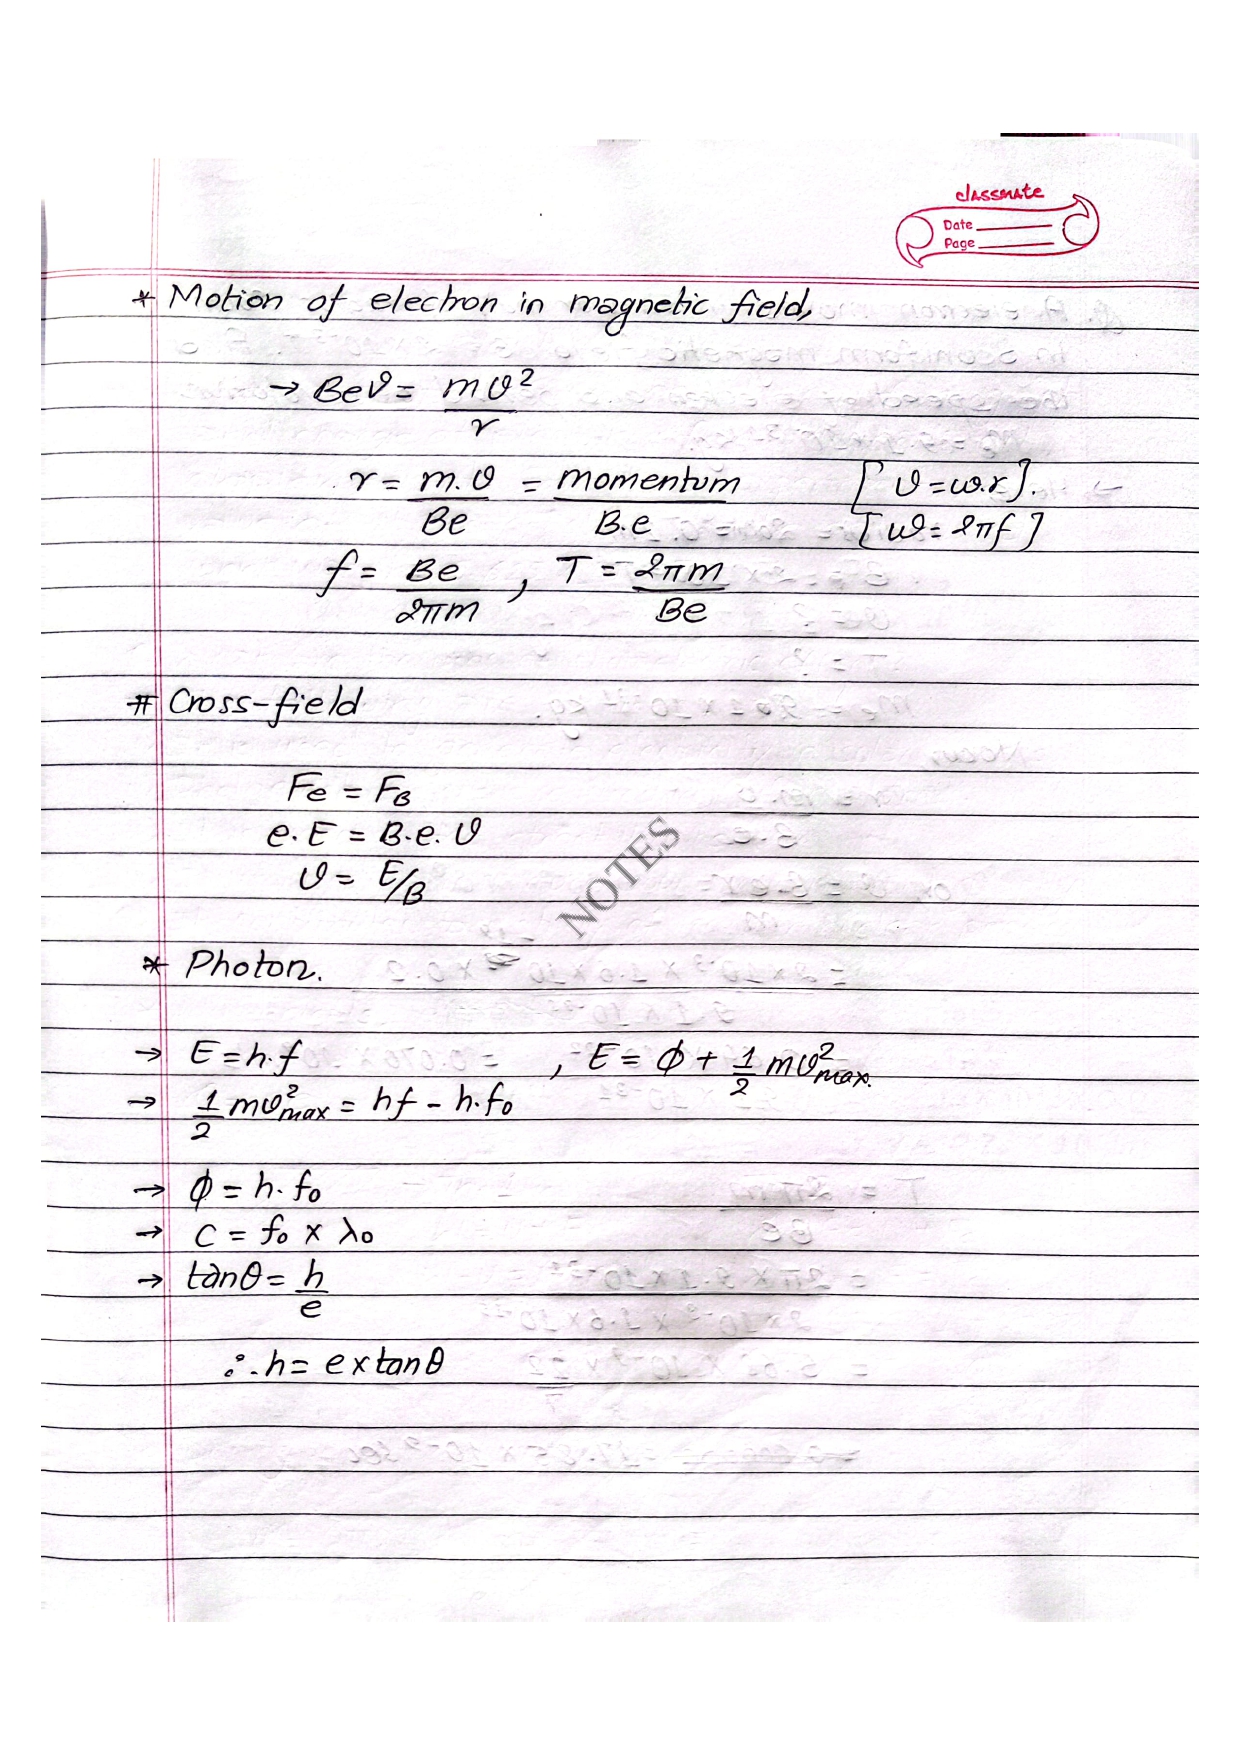 classmate
Date
Page
* Motion of electron in magnetic field,
→ Bev = mv²/r
r = m.v/Be = momentum/B.e [v = ω.r].
[ω = 2πf]
f = Be/2πm , T = 2πm/Be
# Cross-field
Fe = FB
e. E = B.e. v
v = E/B
NOTES
* Photon.
→ E = h.f , E = ϕ + 1/2 mv²max.
→ 1/2 mv²max = hf - h.f₀
→ ϕ = h. f₀
→ C = f₀ × λ₀
→ tanθ = h/e
∴ h = e × tanθ